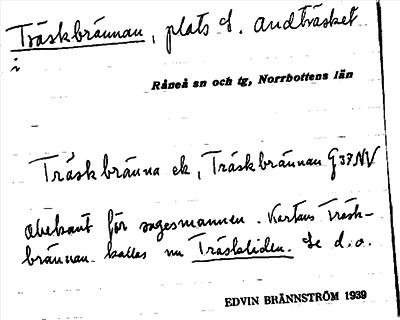 Träskbrännan, plats S. Andträsket
i
Råneå sn och tg, Norrbottens län
Träskbränna ek, Träskbrännan G37NV
obekant för sagesmannen. Kartans Träsk-
brännan kallas nu Träskliden. Se d.o.
EDVIN BRÄNNSTRÖM 1939